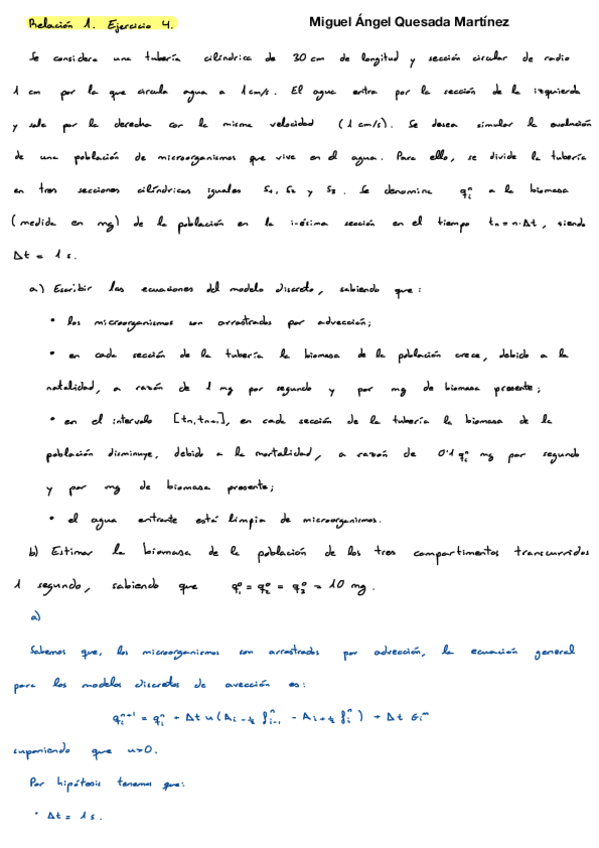 Relación 1. Ejercicio 4. Miguel Ángel Quesada Martínez
Se considera una tubería cilíndrica de 30 cm de longitud y sección circular de radio
1 cm por la que circula agua a 1 cm/s. El agua entra por la sección de la izquierda
y sale por la derecha con la misma velocidad (1 cm/s). Se desea simular la evolución
de una población de microorganismos que vive en el agua. Para ello, se divide la tubería
en tres secciones cilíndricas iguales S₁, S₂ y S₃. Se denomina qᵢⁿ a la biomasa
(medida en mg) de la población en la i-ésima sección en el tiempo tₙ = n·Δt, siendo
Δt = 1 s.
a) Escribir las ecuaciones del modelo discreto, sabiendo que:
• los microorganismos son arrastrados por advección;
• en cada sección de la tubería la biomasa de la población crece, debido a la
natalidad, a razón de 1 mg por segundo y por mg de biomasa presente;
• en el intervalo [tₙ, tₙ₊₁], en cada sección de la tubería la biomasa de la
población disminuye, debido a la mortalidad, a razón de 0'1 qᵢⁿ mg por segundo
y por mg de biomasa presente;
• el agua entrante está limpia de microorganismos.
b) Estimar la biomasa de la población de los tres compartimentos transcurridos
1 segundo, sabiendo que q₁⁰ = q₂⁰ = q₃⁰ = 10 mg.
a)
Sabemos que, los microorganismos son arrastrados por advección, la ecuación general
para los modelos discretos de avección es:
qᵢⁿ⁺¹ = qᵢⁿ + Δt u (A_{i-½} fᵢ₋₁ⁿ - A_{i+½} fᵢⁿ) + Δt Gᵢⁿ
suponiendo que u>0.
Por hipótesis tenemos que:
• Δt = 1 s.